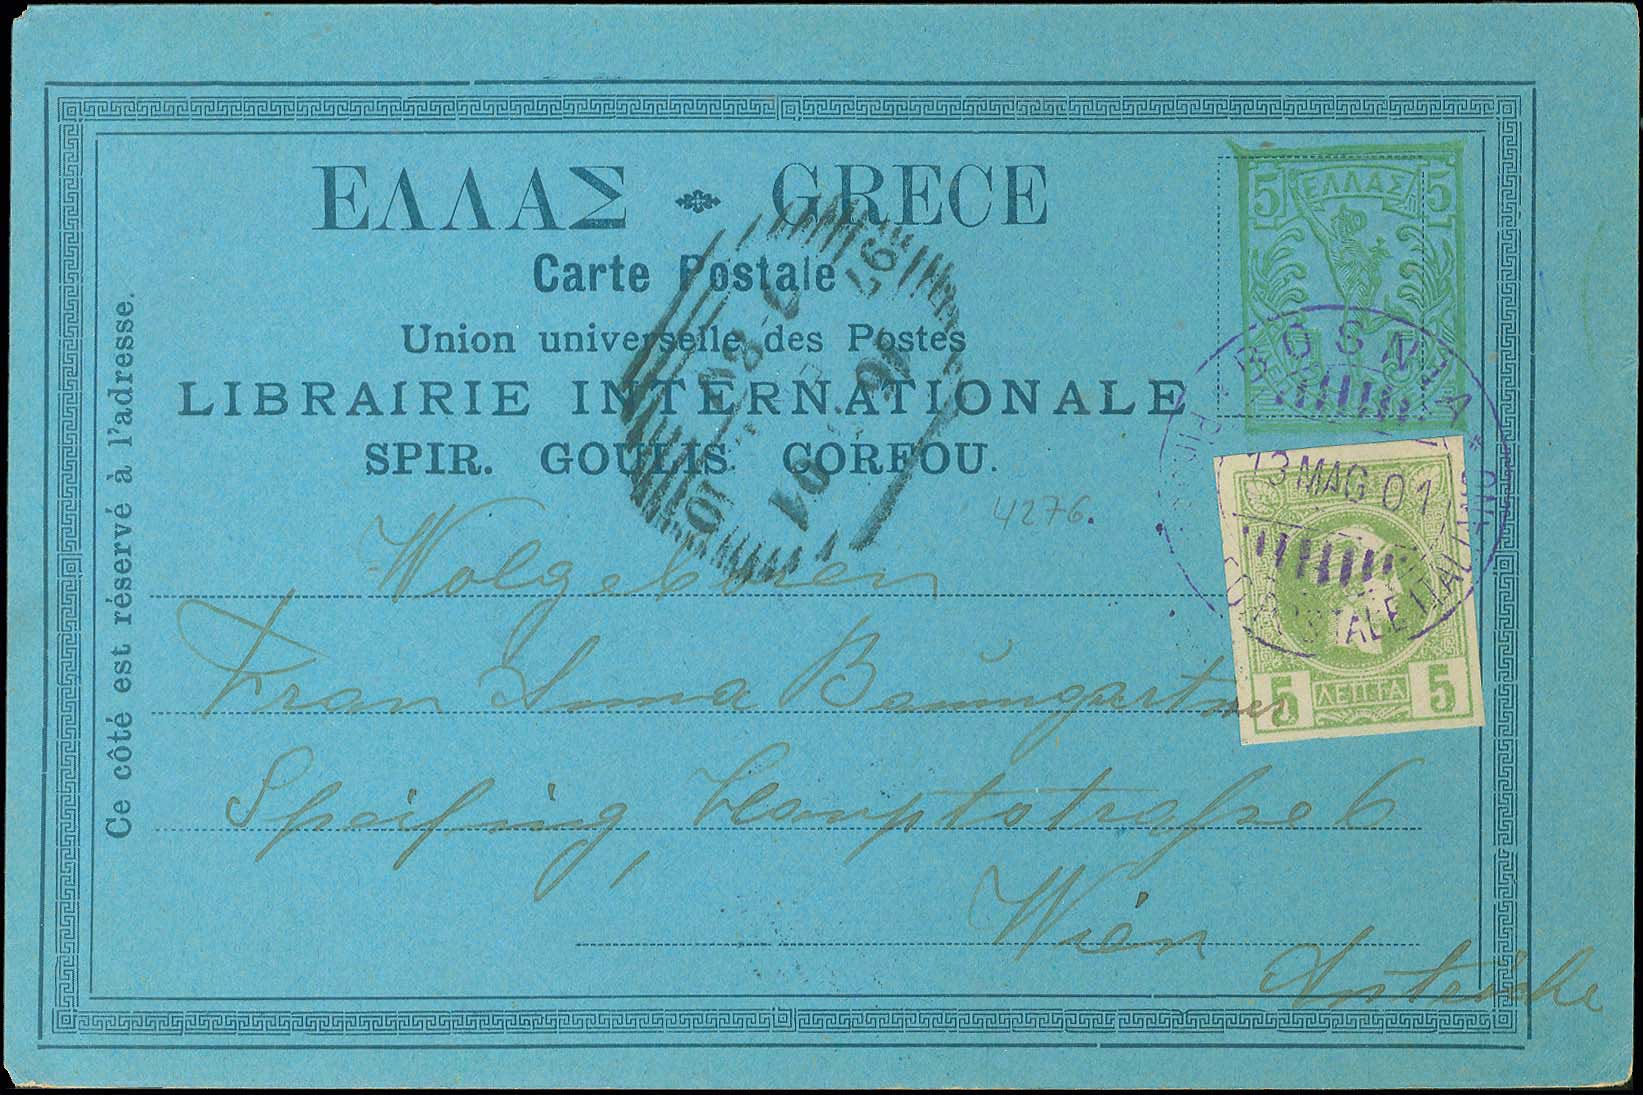 ΕΛΛΑΣ GRECE
Carte Postale
Union universelle des Postes
LIBRAIRIE INTERNATIONALE
SPIR. GOULIS CORFOU.
Ce côté est réservé à l'adresse.
5 ΕΛΛΑΣ 5
BOSNIA
13 MAG 01
POSTALE ITALIANO
5 ΛΕΠΤΑ 5
4276.
Wolgeboren
Frau Anna Baŭmgartner
Speising, Hauptstraße 6
Wien
Autriche